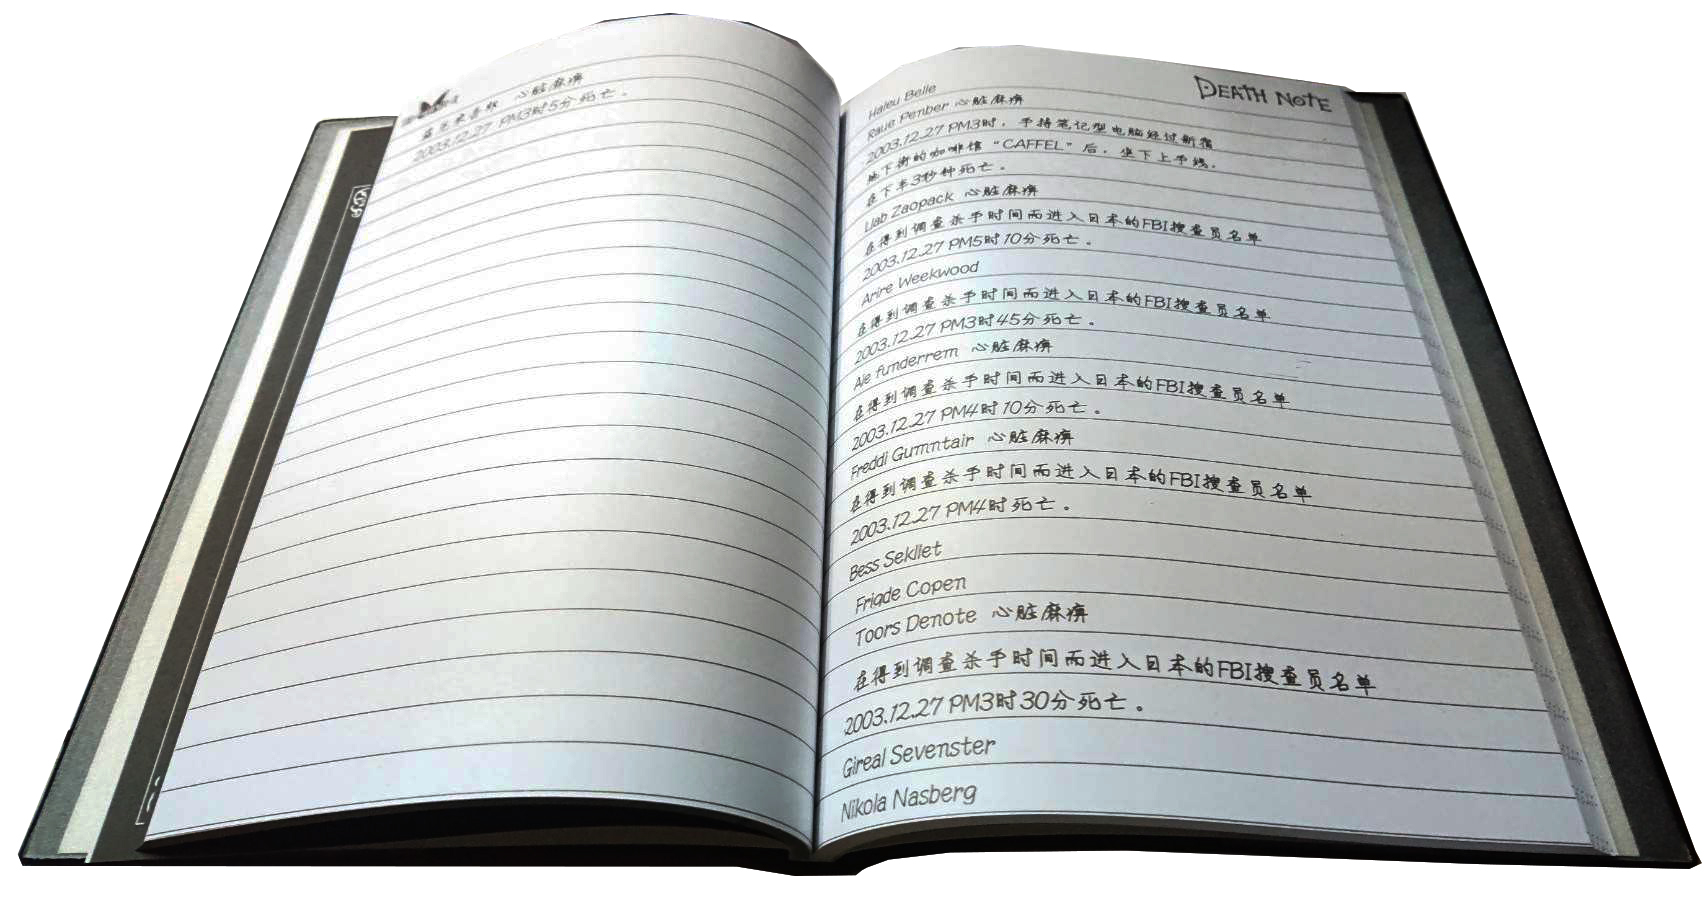 心脏麻痹
2003.12.27 PM3时5分死亡。
DEATH NOTE
Haleu Belle
Raue Penber 心脏麻痹
2003.12.27 PM3时，手持笔记型电脑经过新宿
地下街的咖啡馆“CAFFEL”后，坐下上手线，
在下车3秒钟死亡。
Liab Zaopack 心脏麻痹
在得到调查杀手时间而进入日本的FBI搜查员名单
2003.12.27 PM5时10分死亡。
Arire Weekwood
在得到调查杀手时间而进入日本的FBI搜查员名单
2003.12.27 PM3时45分死亡。
Ale funderrem 心脏麻痹
在得到调查杀手时间而进入日本的FBI搜查员名单
2003.12.27 PM4时10分死亡。
Freddi Gumntair 心脏麻痹
在得到调查杀手时间而进入日本的FBI搜查员名单
2003.12.27 PM4时死亡。
Bess Sekllet
Friqde Copen
Toors Denote 心脏麻痹
在得到调查杀手时间而进入日本的FBI搜查员名单
2003.12.27 PM3时30分死亡。
Gireal Sevenster
Nikola Nasberg